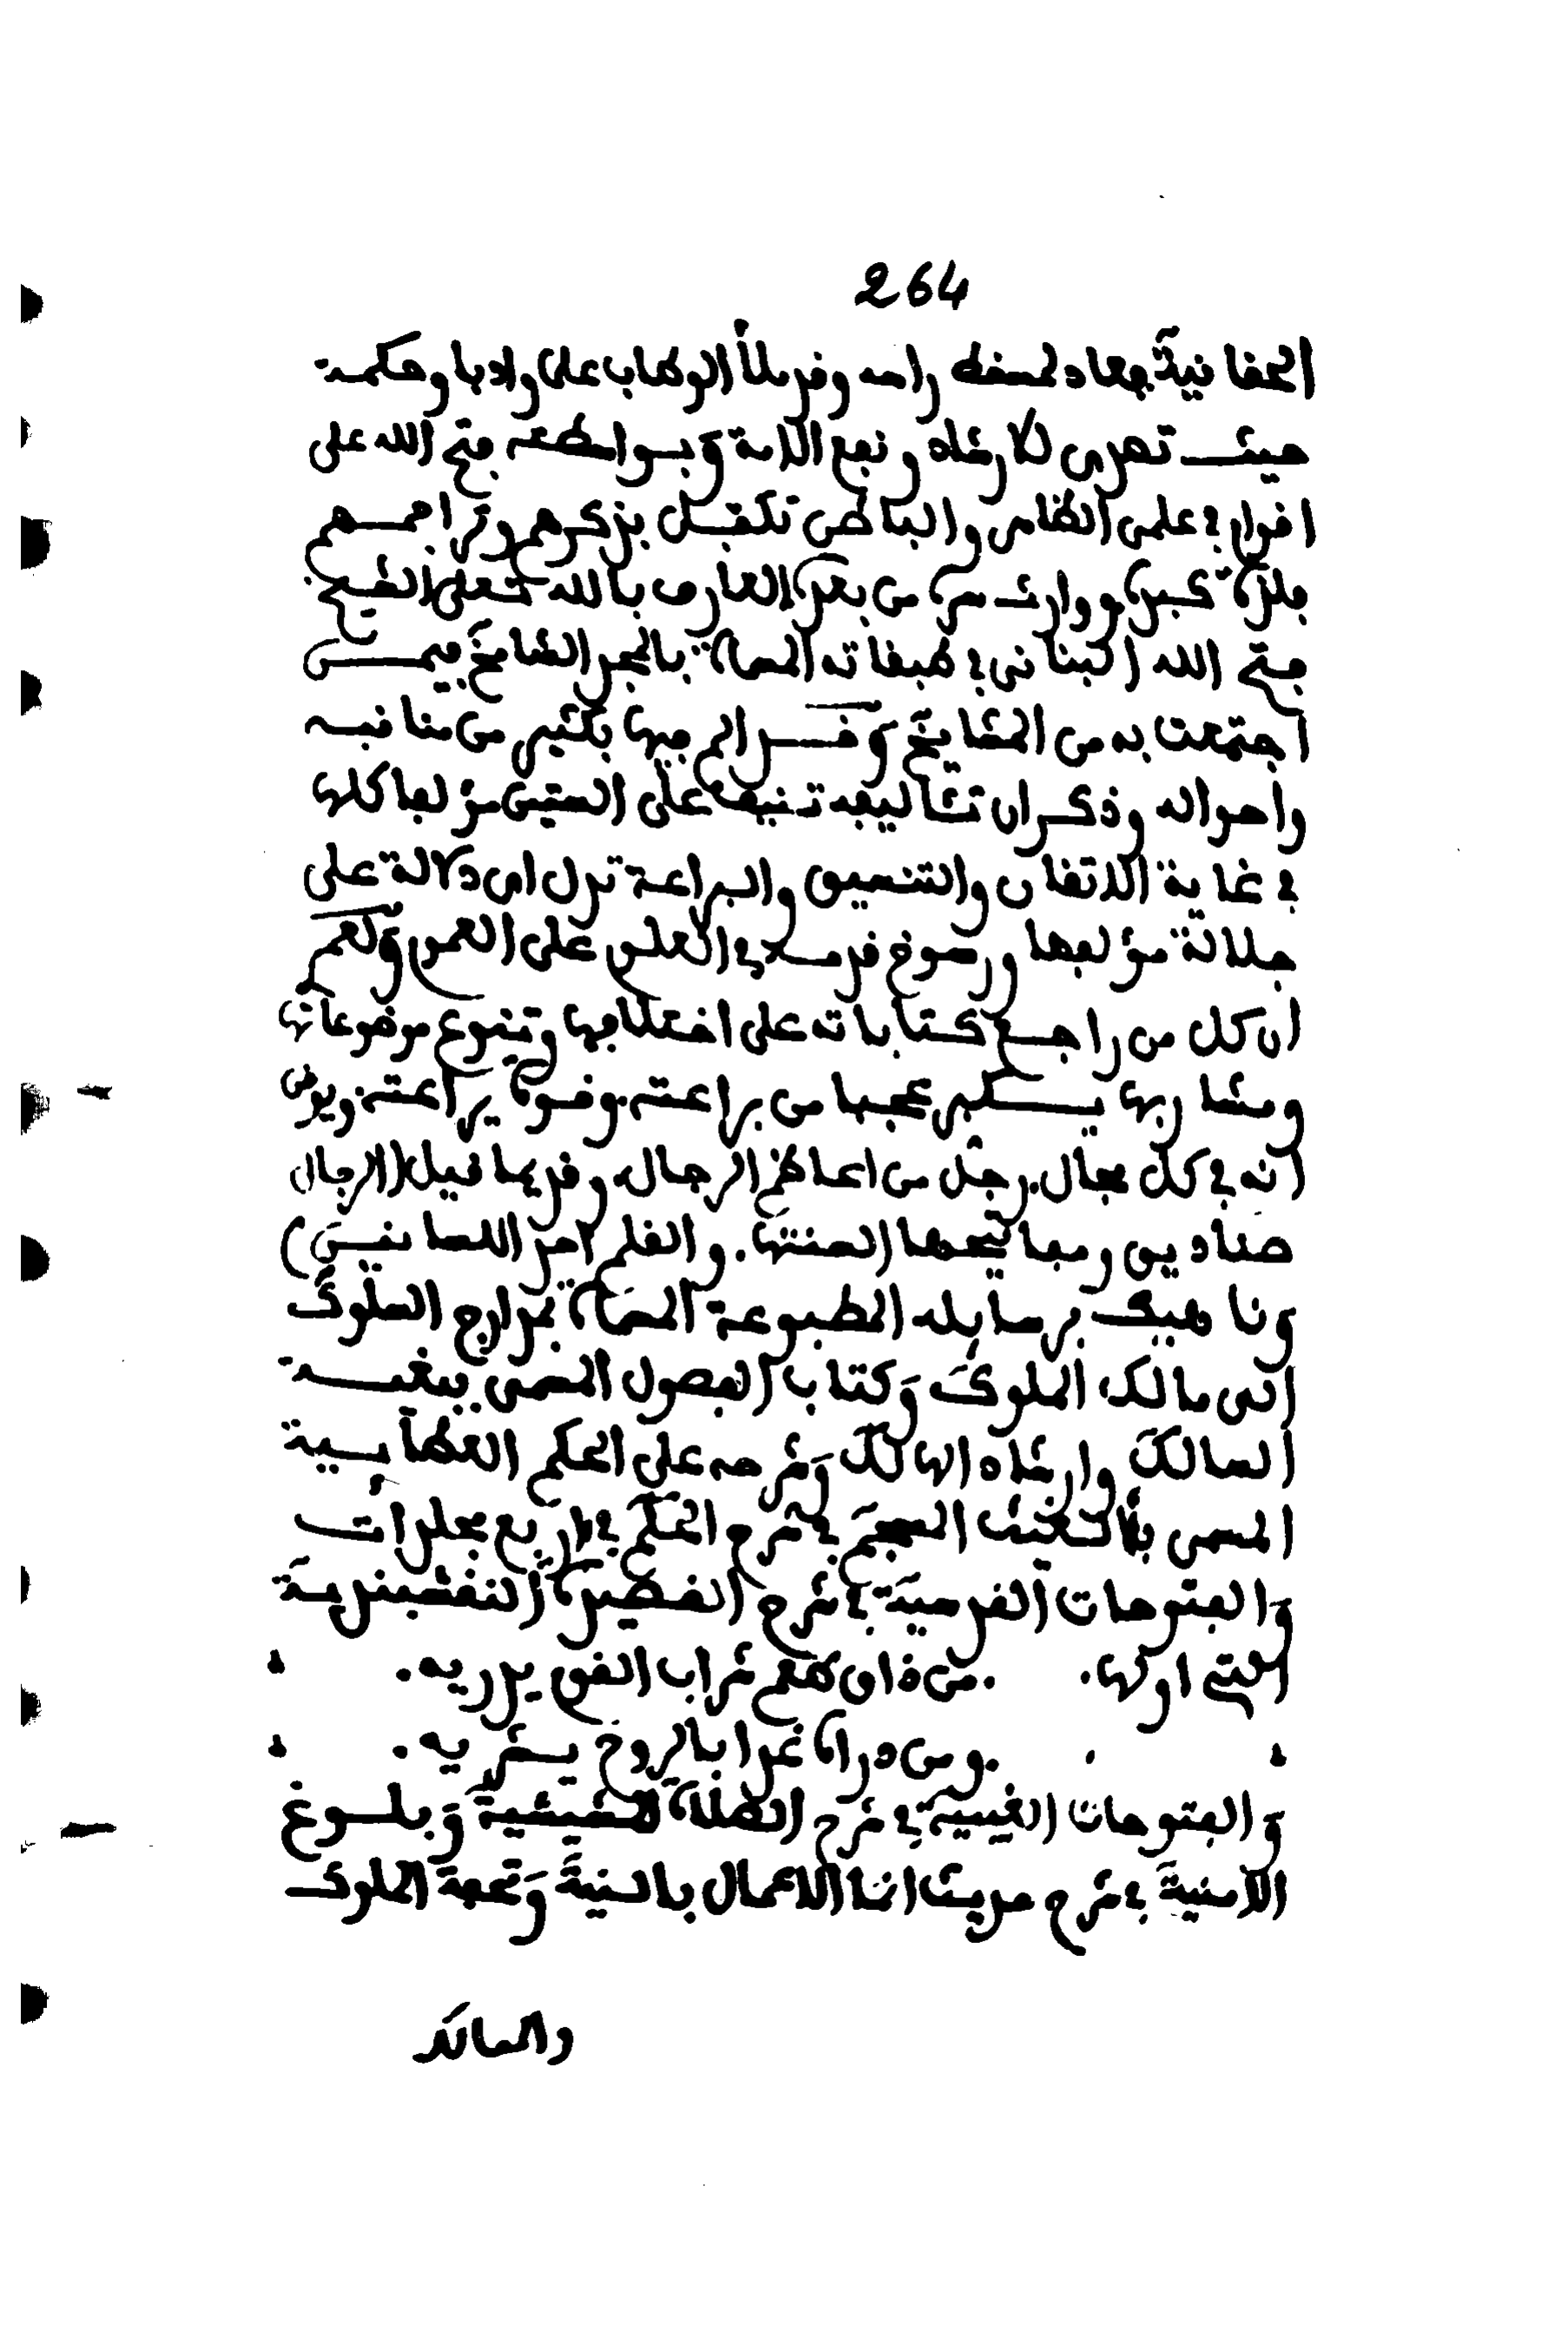 264
الحقانية فعاد لمسقط راسه وقد ملأ الوهاب علما وادبا وحكمة
حيث تصدى للارشاد ونفع الامة وبواسطته فتح الله على
اقوام في علمي الظاهر والباطن تكفل بذكرهم وتراجمهم
فلذة كبده ووارث سره من بعده العارف بالله تعلى الشيخ
فتح الله البناني في طبقاته المسماة بالمجد الشامخ فيمن
اجتمعت به من المشايخ وقد الم فيها بكثير من مناقبه
واحواله وذكر ان تئاليفه تنيف على الستين مؤلفا كلها
في غاية الاتقان والتنسيق والبراعة تدل اي دلالة على
جلالة مؤلفها ورسوخ قدمه في العلوم على العموم ولعمري
ان كل من راجع كتاباته على اختلافها وتنوع موضوعاتها
ومشاربها يستكبر عجبا من براعته وقوة يراعته ويوقن
انه في كل مجال رجل من اعاظم الرجال وقديما قيل (الرجال
صناديق ومفاتيحها السنتها. والقلم احد اللسانين)
وناهيك برسايله المطبوعة المسماة بمدارج السلوك
الى مالك الملوك وكتاب الفصول المسمى ببغية
السالك وارشاد الهالك وشرحه على الحكم العطآئية
المسمى بالغيث المسجم في شرح الحكم في اربع مجلدات
والفتوحات القدسية في شرح القصيدة النقشبندية
التي اولها. . من ذاق طعم شراب القوم يدريه .
. ومن دراه غدا بالروح يشريه .
والفتوحات الغيبية في شرح الصلاة المشيشية وبلوغ
الامنية في شرح حديث انما الاعمال بالنية وتحفة الملوك
والسالك